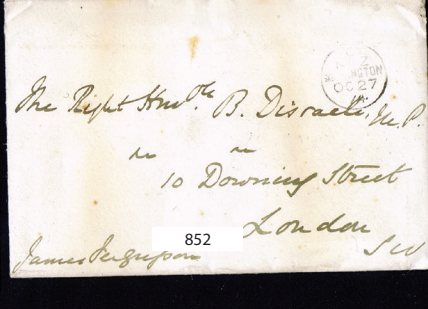 The Right Hon.ble B. Disraeli, M.P.
10 Downing Street
London
S W
James Fergusson
852
OC 27